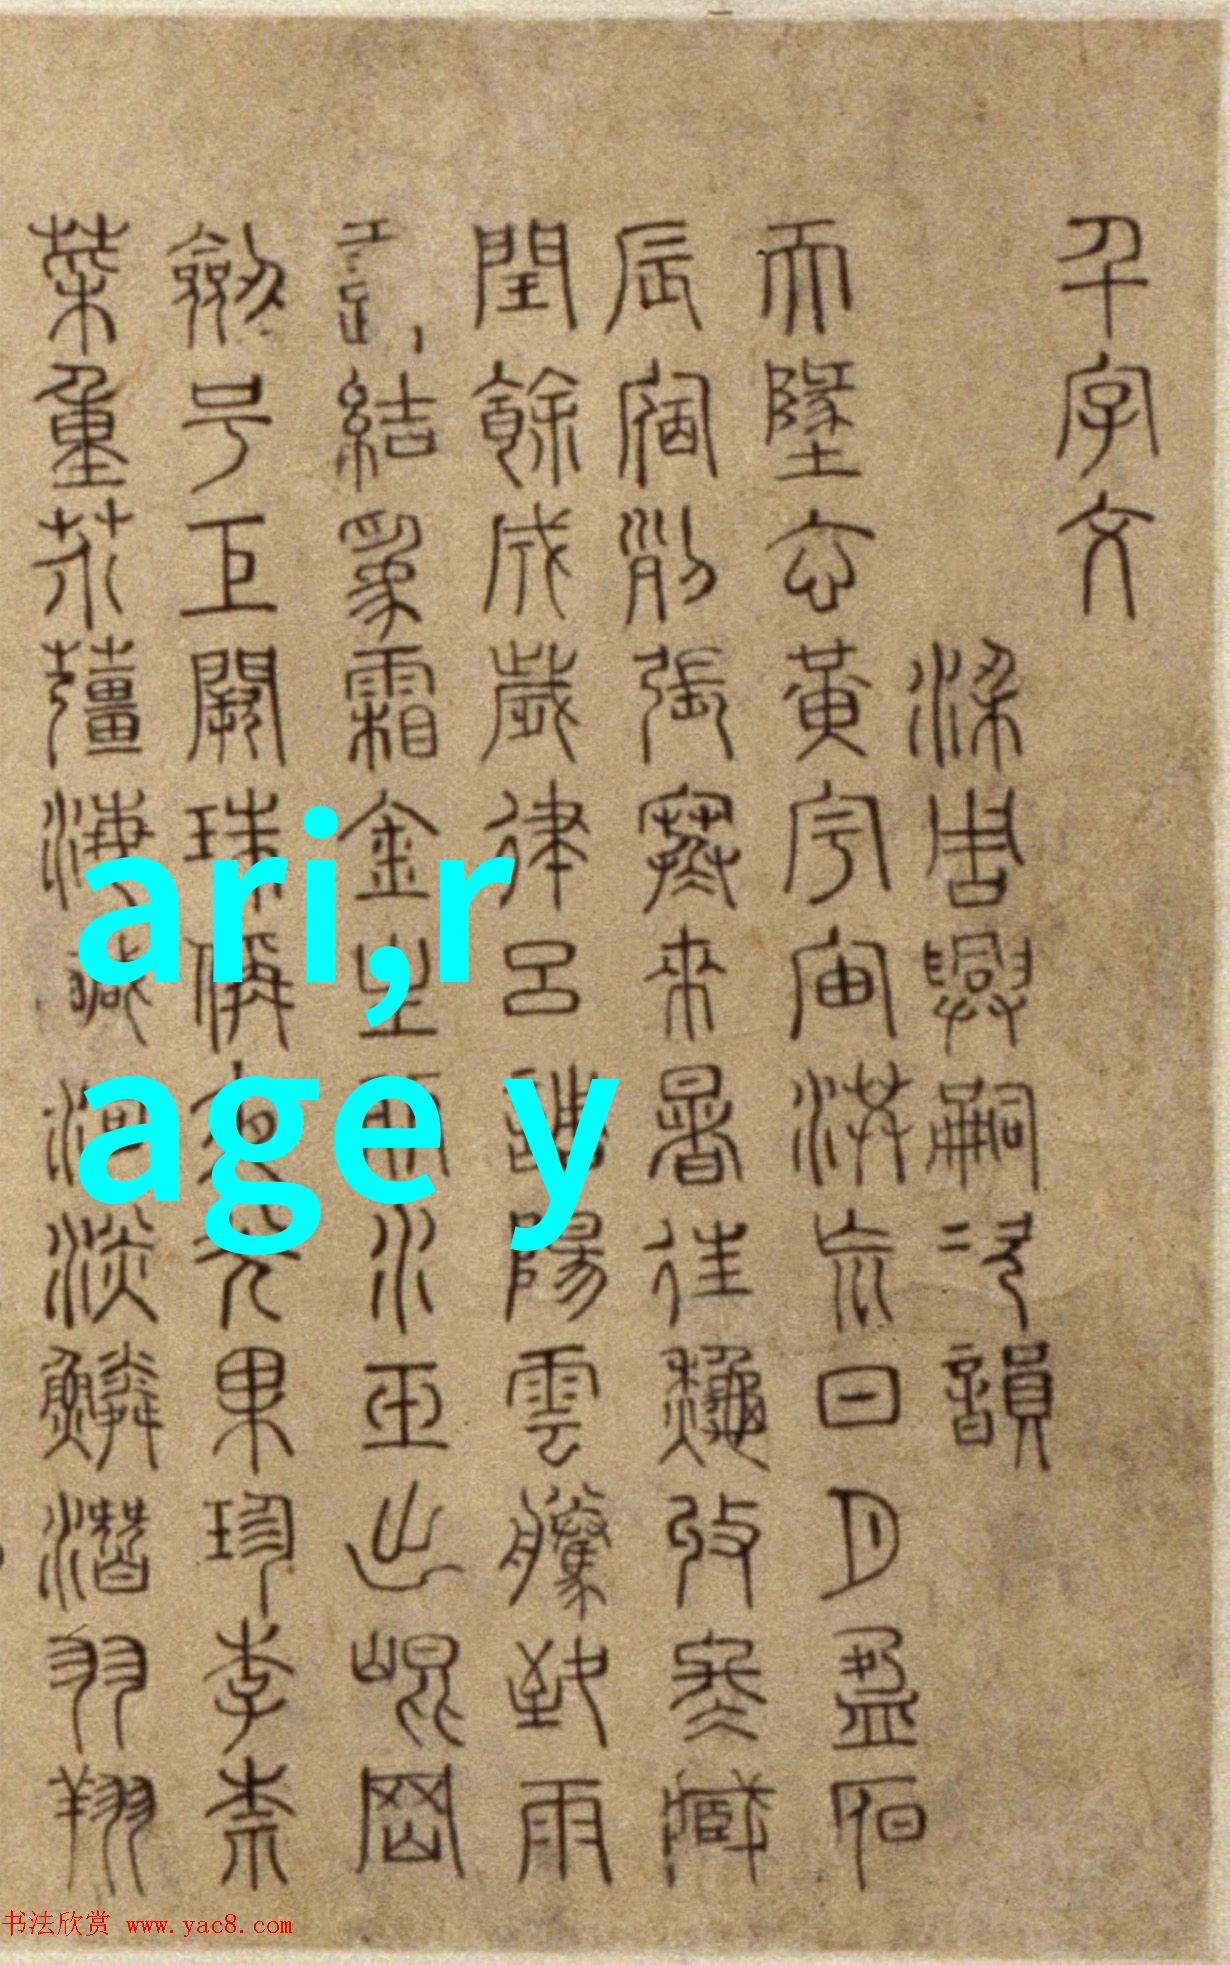 千字文
梁周興嗣次韻
天地玄黃宇宙洪荒日月盈昃
辰宿列張寒來暑往秋收冬藏
閏餘成歲律呂調陽雲騰致雨
露結為霜金生麗水玉出崑岡
劍号巨闕珠稱夜光果珍李柰
菜重芥薑海鹹河淡鱗潛羽翔
ari,r
age y
书法欣赏 www.yac8.com